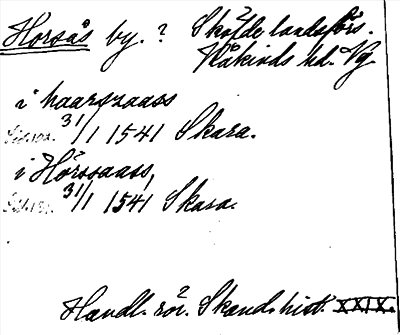 Horsås by. ? Skövde landsförs.
Kåkinds hd. Vg.
i haargzaass
31/1 1541 Skara.
i Hórssaass,
31/1 1541 Skara.
Handl. rör. Skand. hist. XXIX.